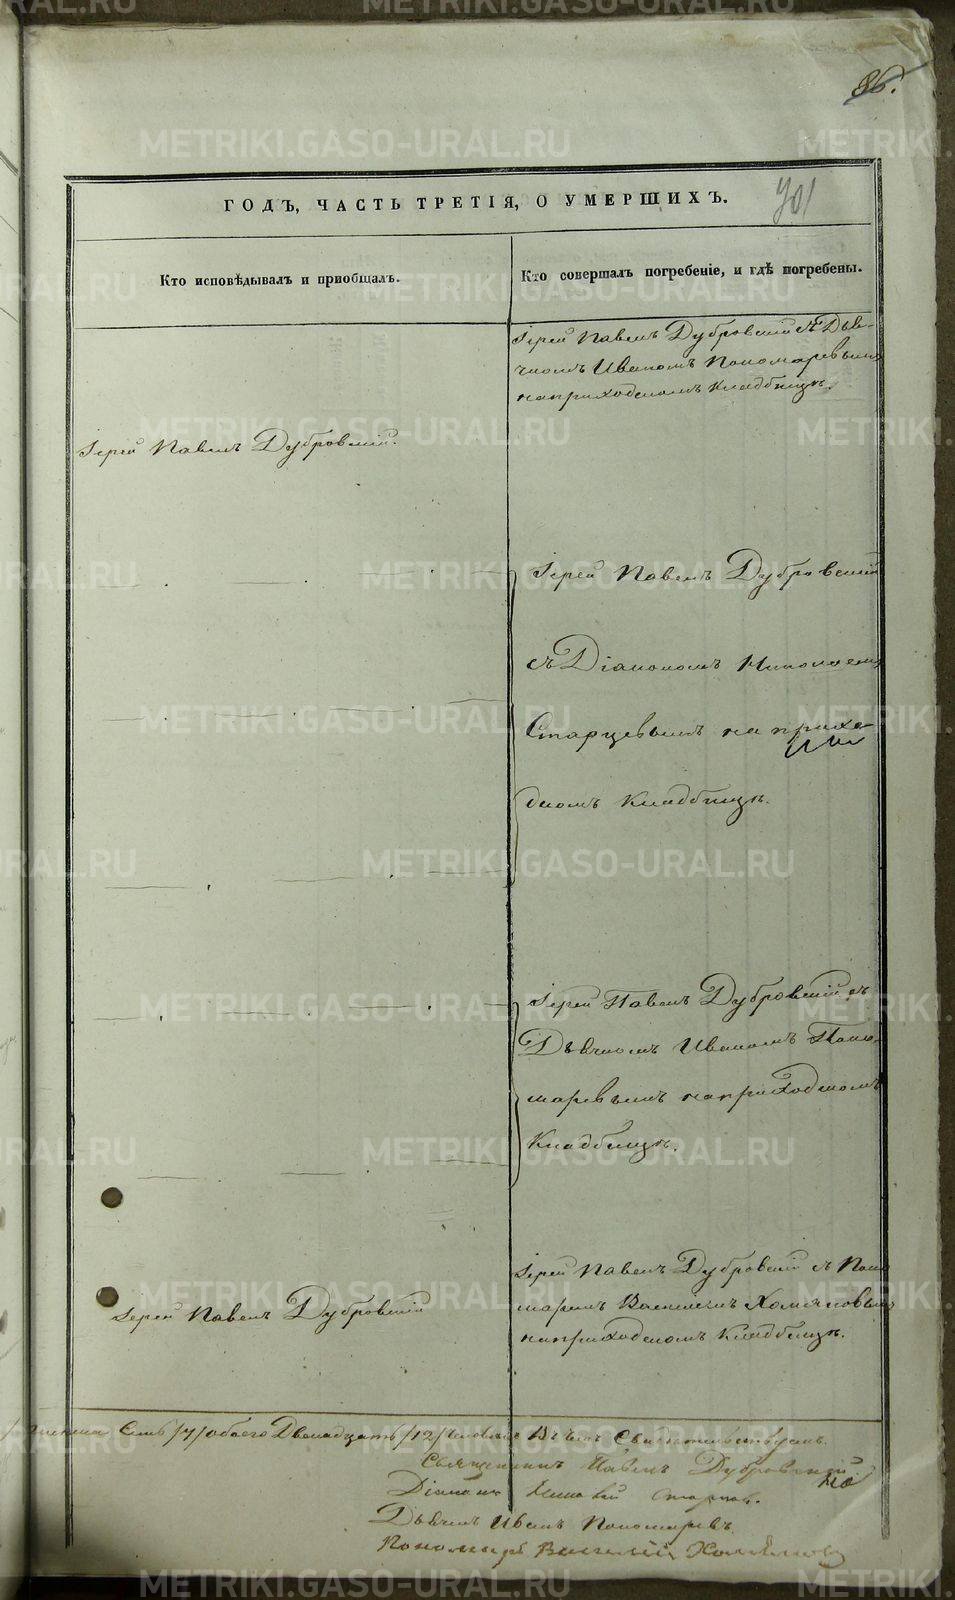 86.
701
ГОДЪ, ЧАСТЬ ТРЕТІЯ, О УМЕРШИХЪ.
Кто исповѣдывалъ и пріобщалъ.
Кто совершалъ погребеніе, и гдѣ погребены.
Іерей Павелъ Дубровскій съ Дья-
чкомъ Иваномъ Пономаревымъ
на приходскомъ кладбищѣ.
Іерей Павелъ Дубровскій.
Іерей Павелъ Дубровскій
съ Діакономъ Николаемъ
Старцевымъ на прихо-
дскомъ кладбищѣ.
Іерей Павелъ Дубровскій съ
Дьячкомъ Иваномъ Поно-
маревымъ на приходскомъ
Кладбищѣ.
Іерей Павелъ Дубровскій
Іерей Павелъ Дубровскій съ Поно
маремъ Василіемъ Хомяковымъ
на приходскомъ кладбищѣ.
Семь /7/ обоего Двенадцать /12/ человѣкъ. Въ чемъ Свидѣтельствуемъ.
Священникъ Павелъ Дубровскій.
Діаконъ Николай Старцовъ.
Дьячекъ Иванъ Пономаревъ.
Пономарь Василій Хомяковъ
METRIKI.GASO-URAL.RU